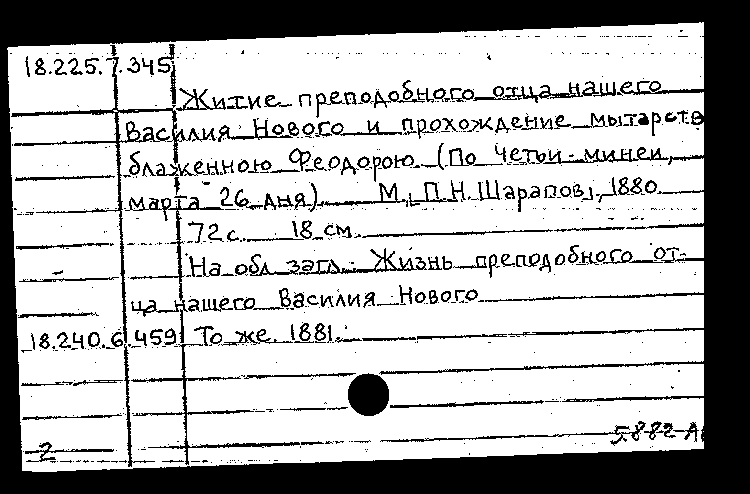 18.225.7.345
Житие преподобного отца нашего
Василия Нового и прохождение мытарств
блаженною Феодорою. (По Четьи-минеи,
марта 26 дня). М., П.Н. Шарапов, 1880.
72 с. 18 см.
На обл. загл.: Жизнь преподобного от-
ца нашего Василия Нового
18.240.6.459 То же. 1881.
2